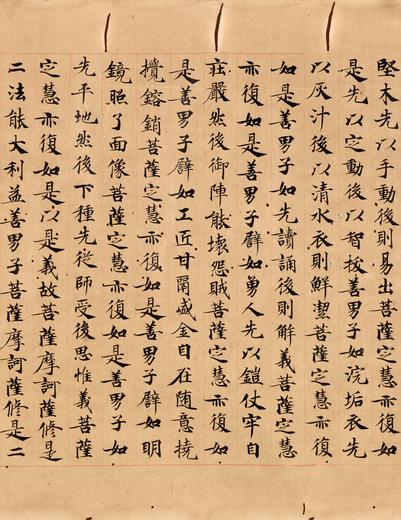 堅木先以手動後則易出菩薩定慧亦復如
是先以定動後以智拔善男子如浣垢衣先
以灰汁後以清水衣則鮮潔菩薩定慧亦復
如是善男子如先讀誦後則解義菩薩定慧
亦復如是善男子譬如勇人先以鎧仗牢自
莊嚴然後御陣能壞怨賊菩薩定慧亦復如
是善男子譬如工匠甘鬲盛金自在随意撓
攪鎔銷菩薩定慧亦復如是善男子譬如明
鏡照了面像菩薩定慧亦復如是善男子如
先平地然後下種先從師受後思惟義菩薩
定慧亦復如是以是義故菩薩摩訶薩修是
二法能大利益善男子菩薩摩訶薩修是二